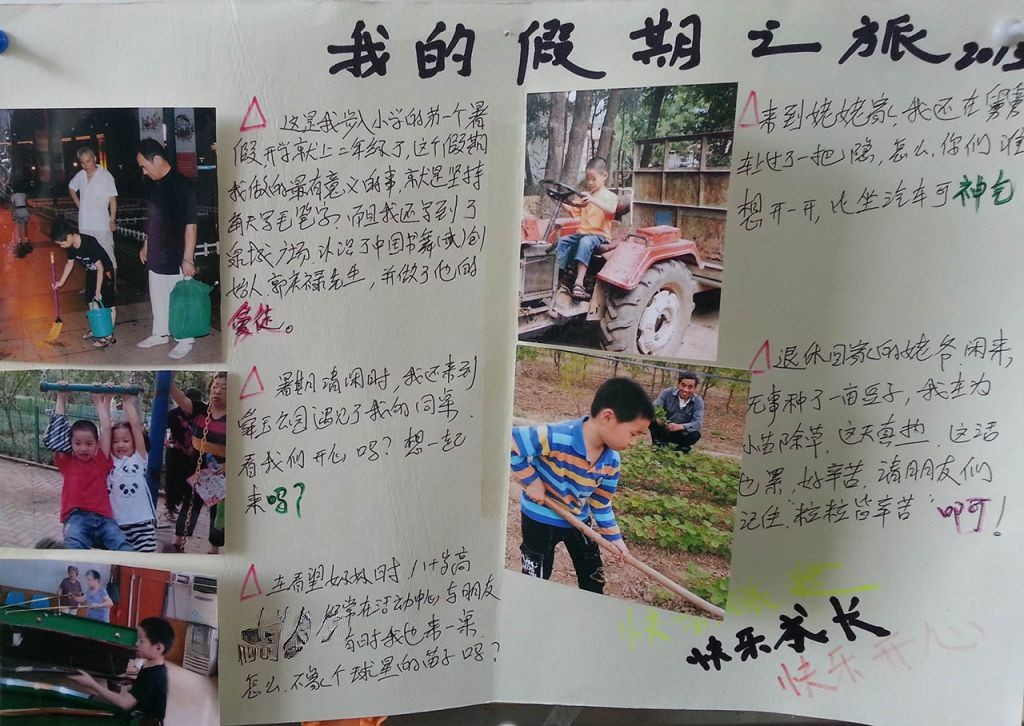 我的假期之旅 2013
这是我步入小学的第一个暑
假,开学就上二年级了,这个假期
我做的最有意义的事,就是坚持
每天写毛笔字,而且我还写到了
泉城广场,认识了中国书舞(武)创
始人,郭庆禄先生,并做了他的
爱徒。
暑期清闲时,我还来到
舜玉公园遇见了我的同桌.
看我们开心吗?想一起
来吗?
去看望
时,八十岁高
常在活动中心与朋友
有时我也来一桌.
怎么,不象个球星的苗子吗?
来到姥姥家,我还在舅舅
车上过了一把隐,怎么,你们谁
想开一开,比坐汽车可神气
退休回家的姥爷闲来
无事种了一亩豆子,我去为
小苗除草,这天真热,这活
也累,好辛苦,请朋友们
记住,粒粒皆辛苦
啊!
快乐成长
快乐开心